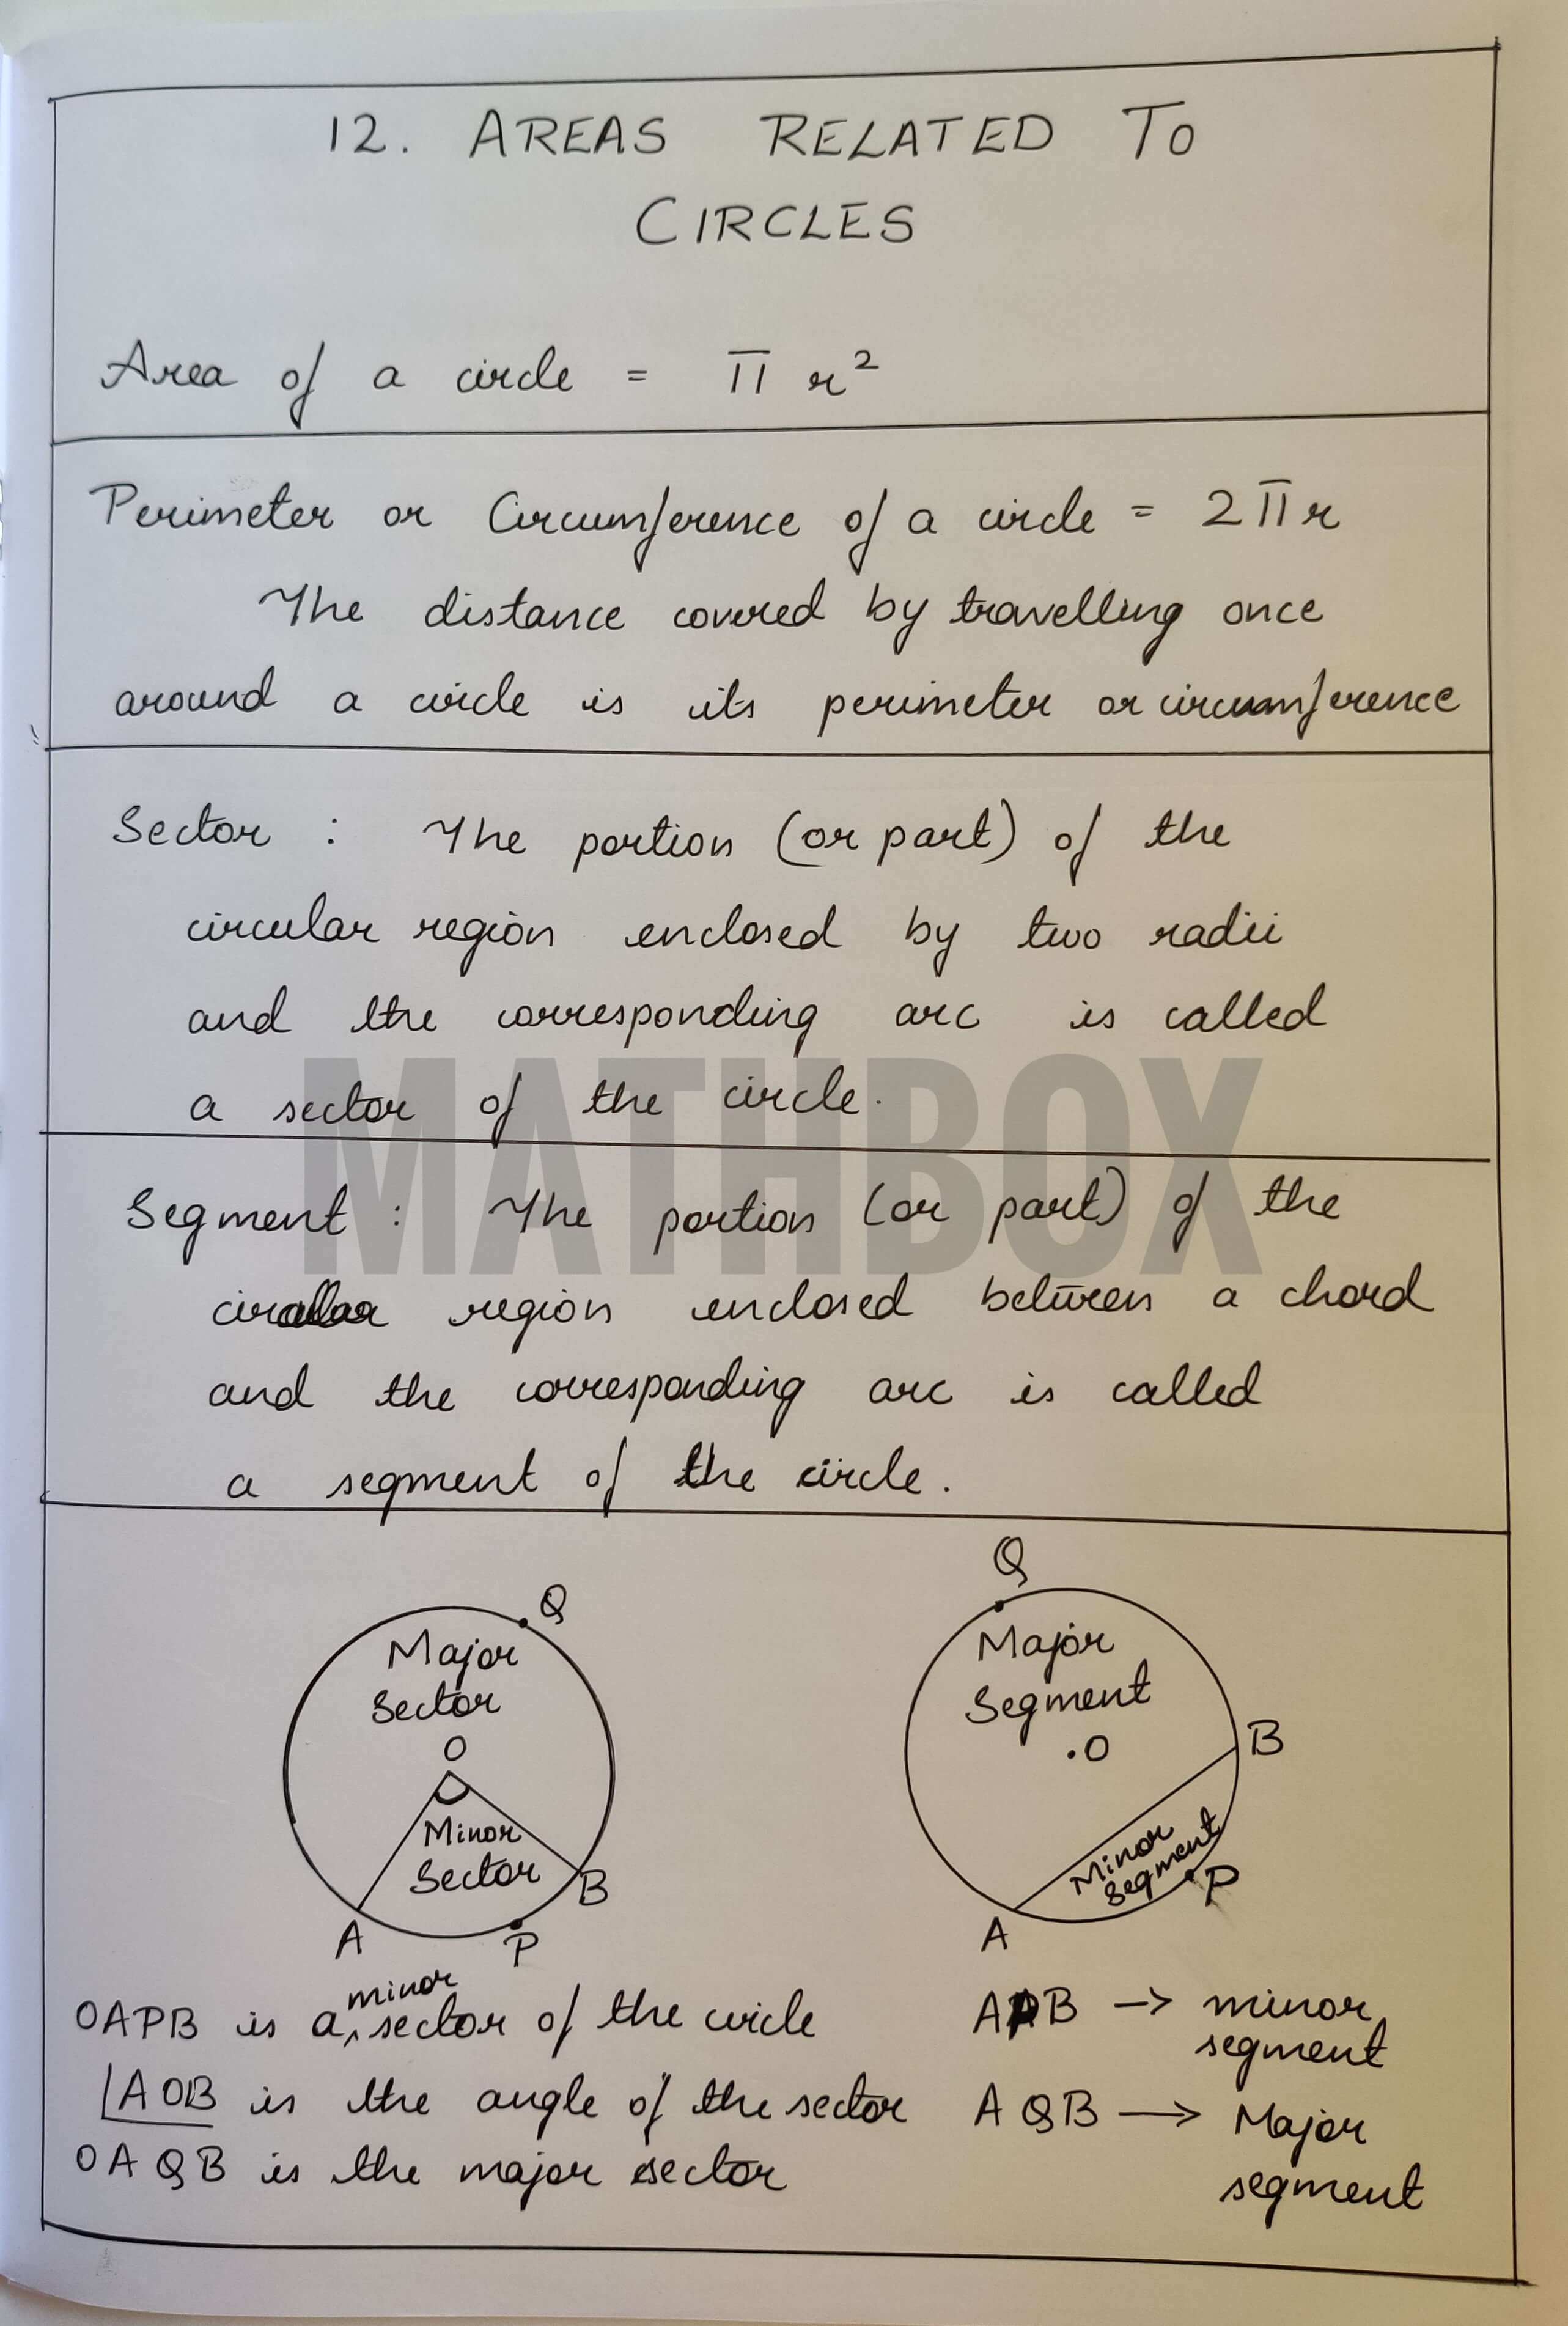 12. AREAS RELATED TO
CIRCLES
Area of a circle = π r²
Perimeter or Circumference of a circle = 2πr
The distance covered by travelling once
around a circle is its perimeter or circumference
Sector : The portion (or part) of the
circular region enclosed by two radii
and the corresponding arc is called
a sector of the circle.
MATHBOX
Segment : The portion (or part) of the
circular region enclosed between a chord
and the corresponding arc is called
a segment of the circle.
Q
Major
Sector
O
Minor
Sector
A
B
P
Q
Major
Segment
.O
B
Minor
Segment
P
A
OAPB is a minor sector of the circle
∠AOB is the angle of the sector
OAQB is the major sector
APB → minor
segment
AQB → Major
segment